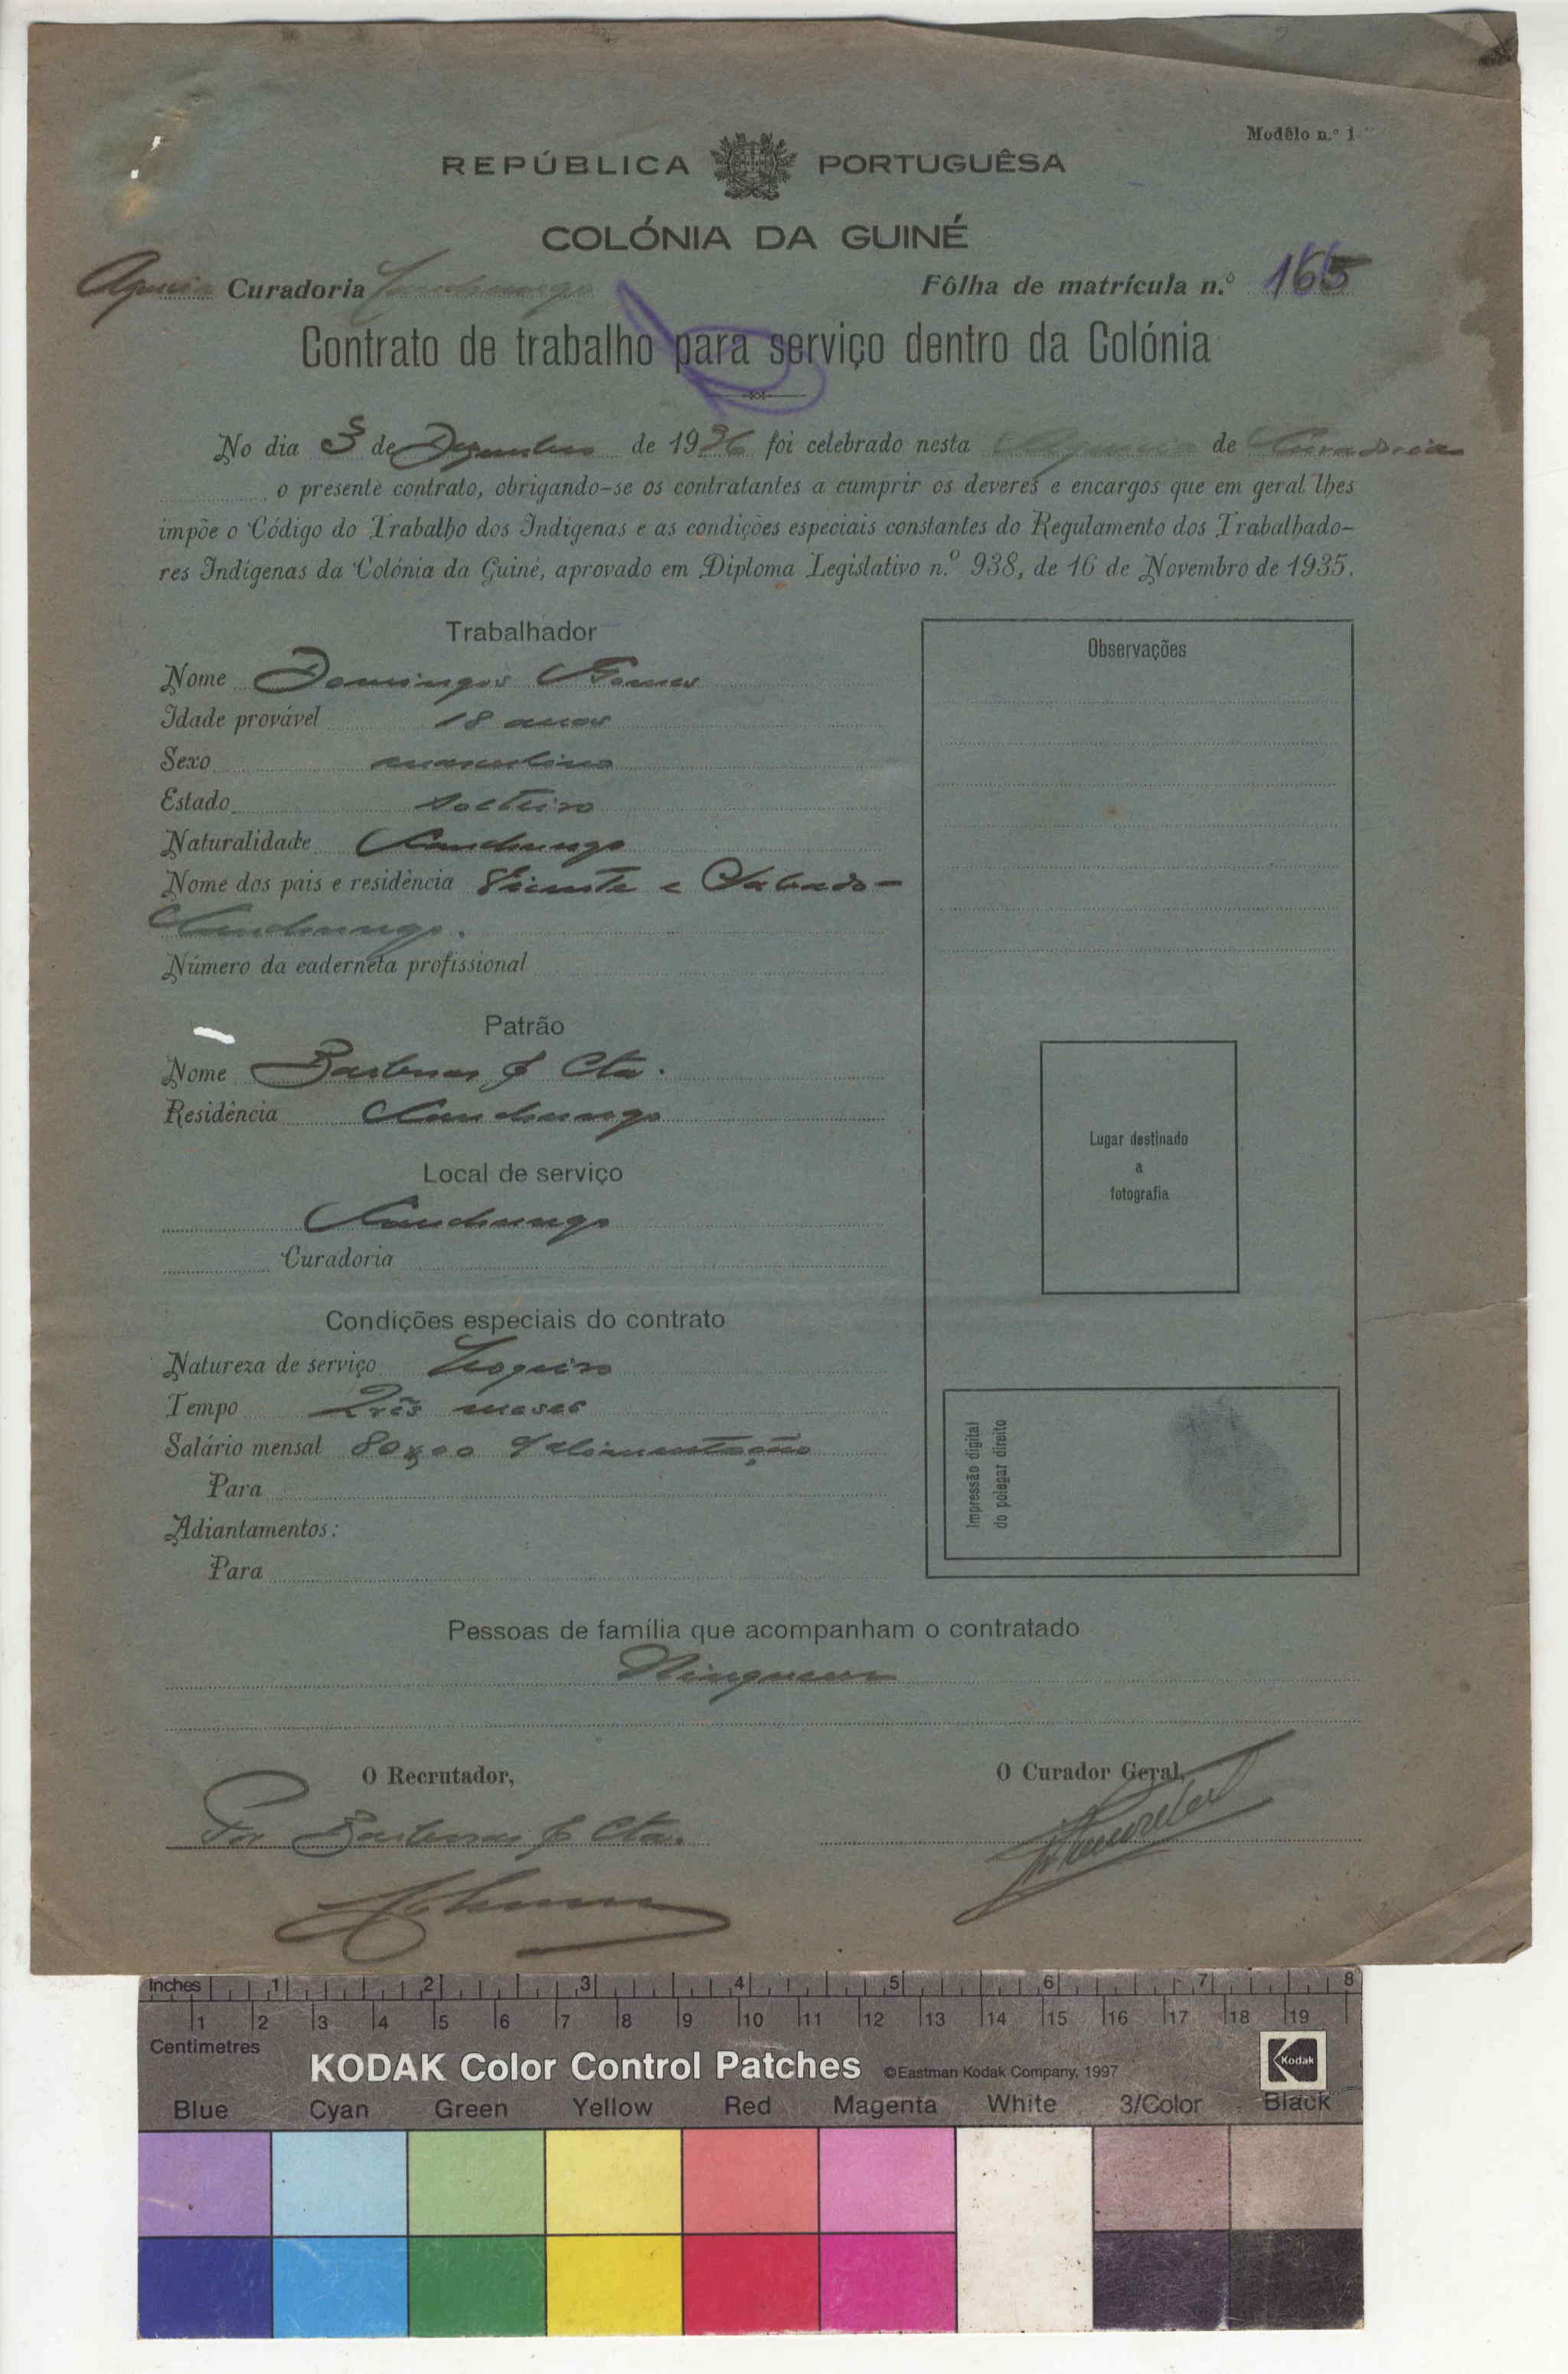 Modêlo n.º 1
REPÚBLICA PORTUGUÊSA
COLÓNIA DA GUINÉ
Curadoria Canchungo Fôlha de matrícula n.º 165
Contrato de trabalho para serviço dentro da Colónia
No dia 3 de Dezembro de 1936 foi celebrado nesta Agencia de Curadoria
o presente contrato, obrigando-se os contratantes a cumprir os deveres e encargos que em geral lhes
impõe o Código do Trabalho dos Indígenas e as condições especiais constantes do Regulamento dos Trabalhado-
res Indígenas da Colónia da Guiné, aprovado em Diploma Legislativo n.º 938, de 16 de Novembro de 1935.
Trabalhador
Nome Domingos Gomes
Idade provável 18 anos
Sexo masculino
Estado solteiro
Naturalidade Canchungo
Nome dos pais e residência Vicente e Sabado-
Canchungo.
Número da caderneta profissional
Patrão
Nome Barbosas & Cta.
Residência Canchungo
Local de serviço
Canchungo
Curadoria
Condições especiais do contrato
Natureza de serviço
Tempo Três meses
Salário mensal 80$00 Alimentação
Para
Adiantamentos:
Para
Observações
Lugar destinado
a
fotografia
Impressão digital
do polegar direito
Pessoas de família que acompanham o contratado
Ninguem
O Recrutador, O Curador Geral,
Por Barbosas & Cta.
Inches 1 2 3 4 5 6 7 8
1 2 3 4 5 6 7 8 9 10 11 12 13 14 15 16 17 18 19
Centimetres
KODAK Color Control Patches ©Eastman Kodak Company, 1997 Kodak
Blue Cyan Green Yellow Red Magenta White 3/Color Black